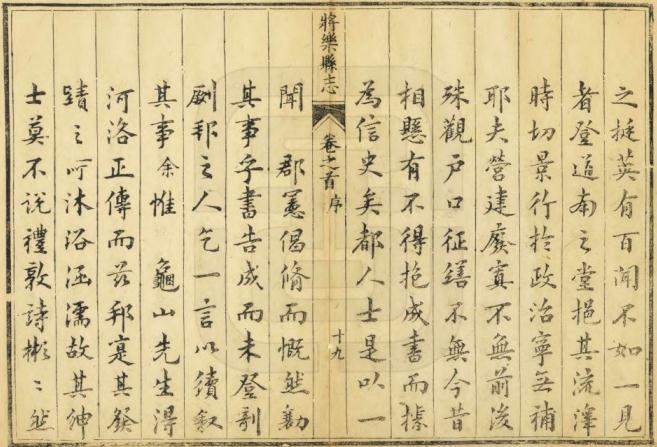 之挺英有百聞不如一見
者登道南之堂挹其流澤
時切景行扵政治寧無補
耶夫營建廢寘不無前後
殊觀戶口征繕不無今昔
相懸有不得抱成書而據
為信史矣都人士是以一
將樂縣志
卷之首序
十九
聞 郡憲倡脩而慨然勷
其事乎書告成而未登剞
劂邦之人乞一言以續叙
其事余惟 龜山先生得
河洛正傳而玆邦寔其發
蹟之所沐浴涵濡故其紳
士莫不說禮敦詩彬〻然